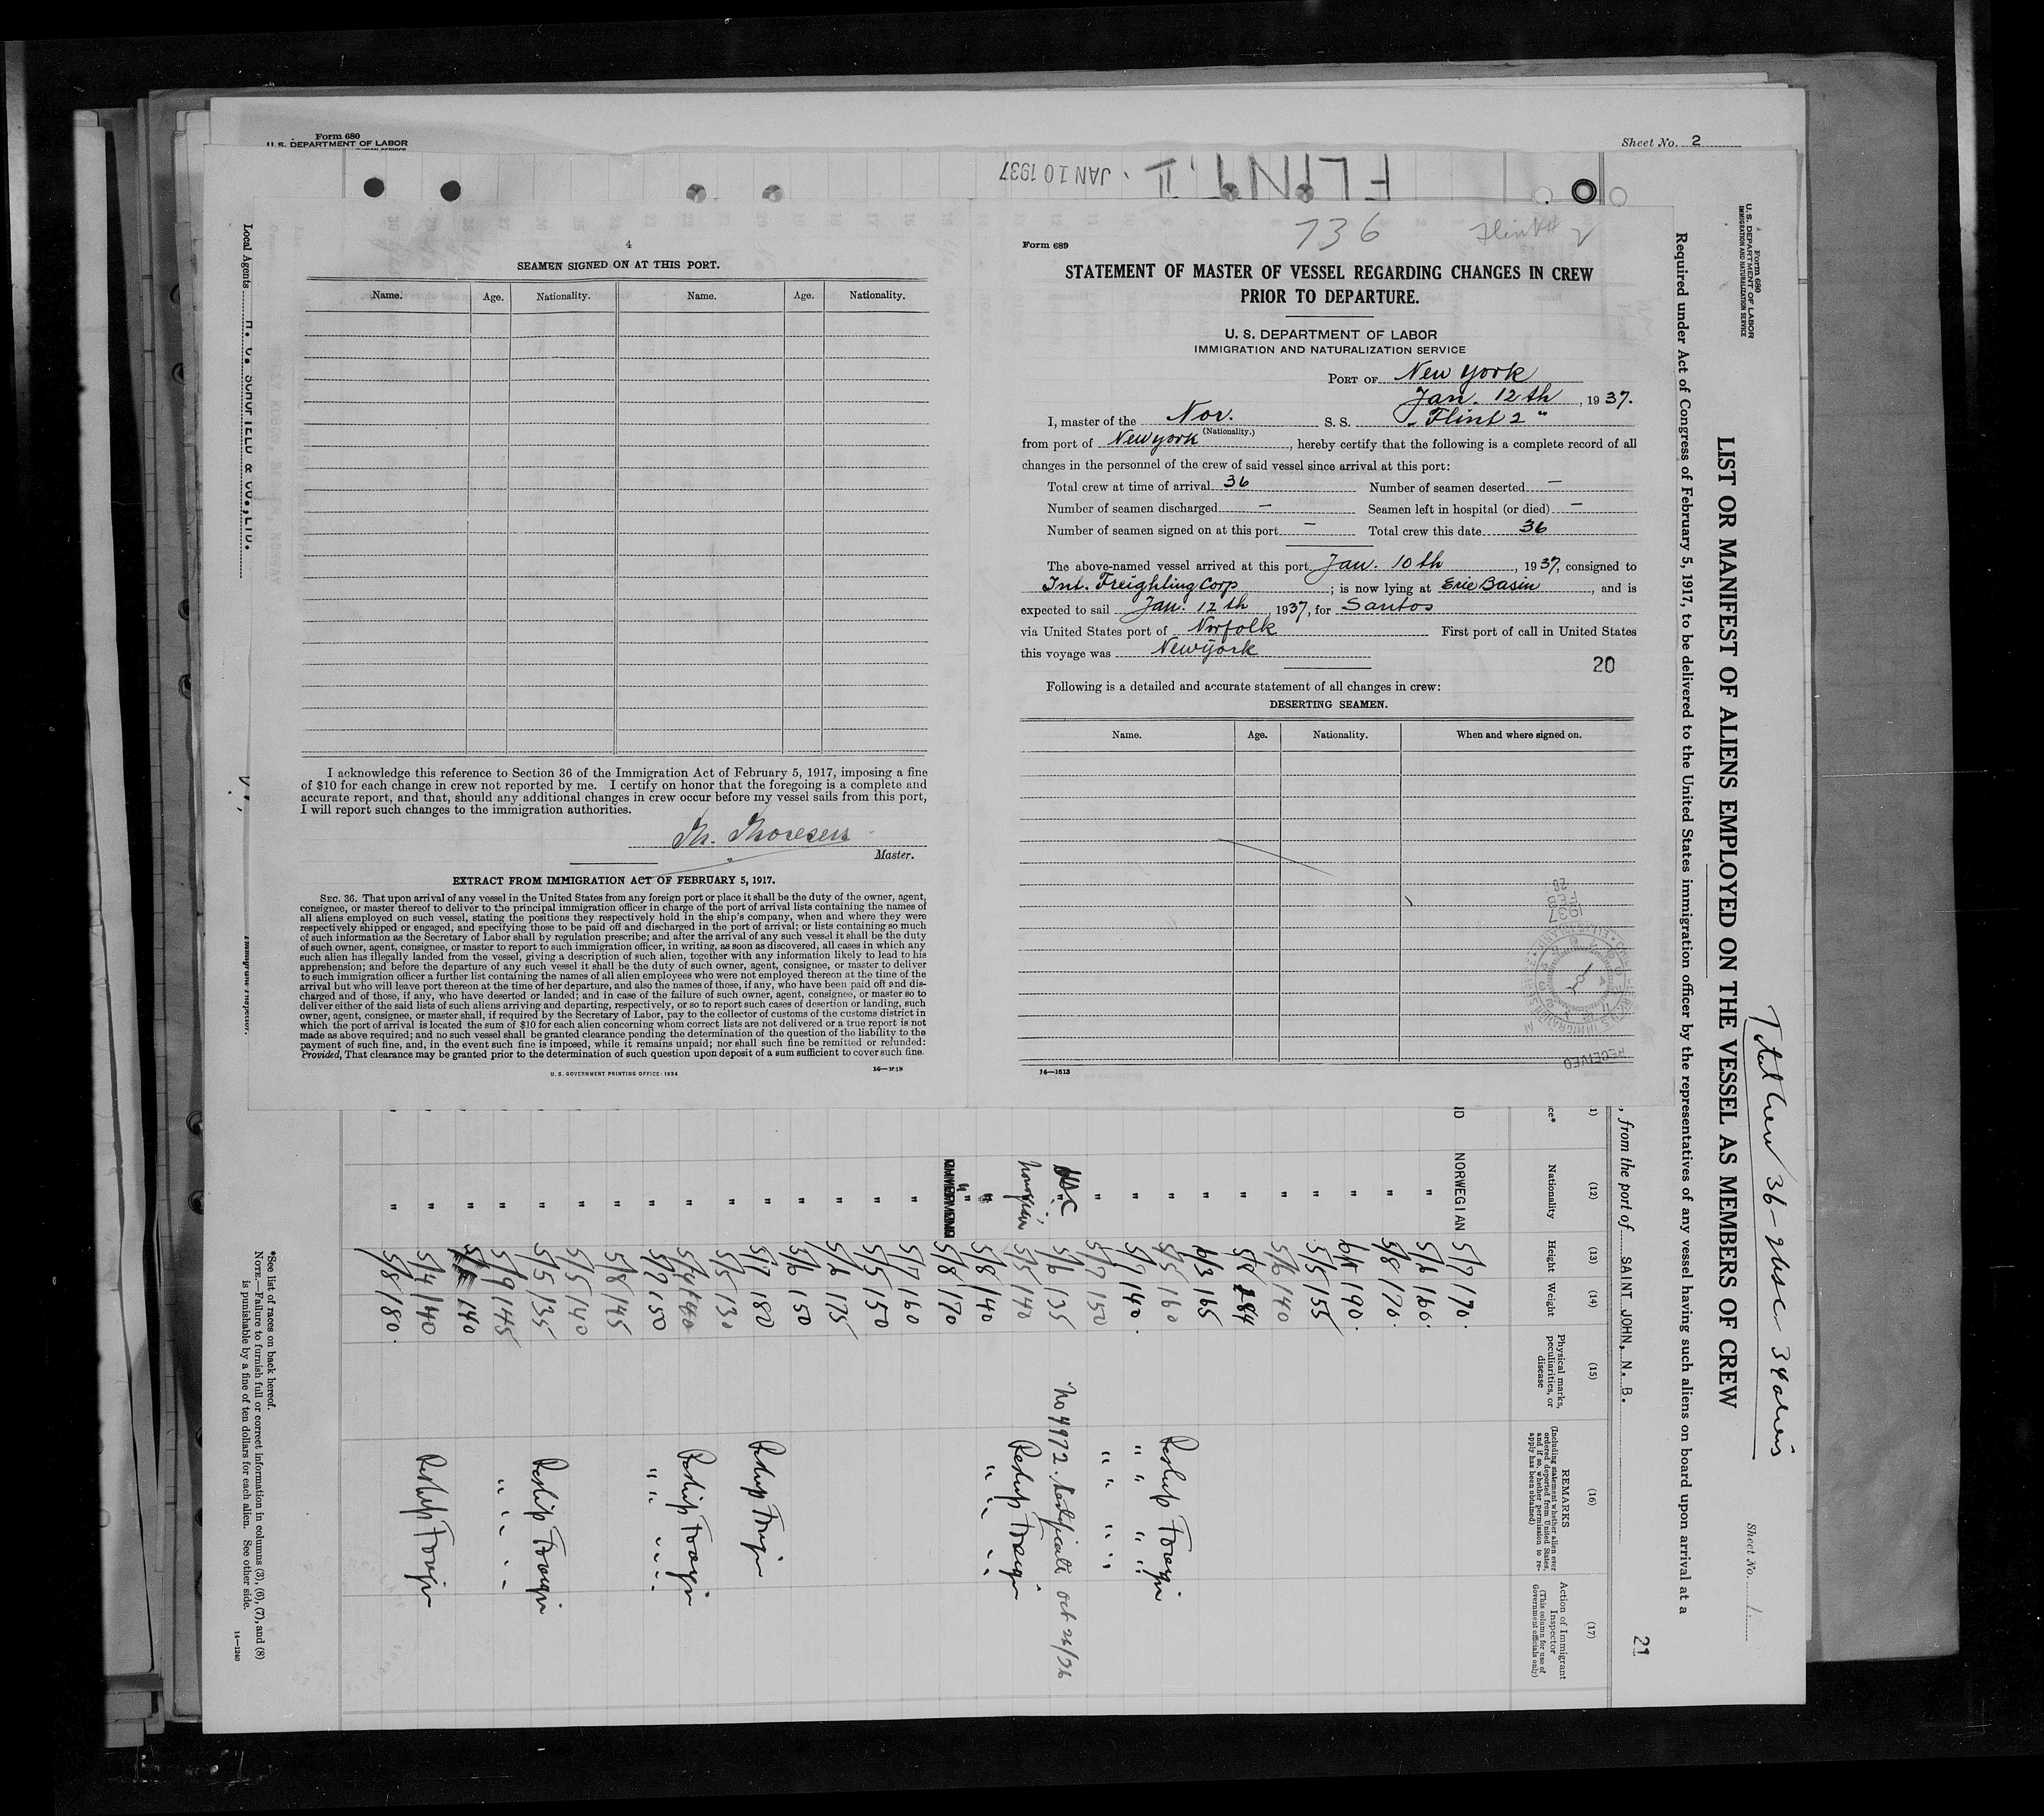 Form 680
U. S. DEPARTMENT OF LABOR
Sheet No. 2
FLINT. II
JAN 10 1937
4
SEAMEN SIGNED ON AT THIS PORT.
Name. Age. Nationality. Name. Age. Nationality.
I acknowledge this reference to Section 36 of the Immigration Act of February 5, 1917, imposing a fine
of $10 for each change in crew not reported by me. I certify on honor that the foregoing is a complete and
accurate report, and that, should any additional changes in crew occur before my vessel sails from this port,
I will report such changes to the immigration authorities.
Th. Thoresen
Master.
EXTRACT FROM IMMIGRATION ACT OF FEBRUARY 5, 1917.
SEC. 36. That upon arrival of any vessel in the United States from any foreign port or place it shall be the duty of the owner, agent,
consignee, or master thereof to deliver to the principal immigration officer in charge of the port of arrival lists containing the names of
all aliens employed on such vessel, stating the positions they respectively hold in the ship's company, when and where they were
respectively shipped or engaged, and specifying those to be paid off and discharged in the port of arrival; or lists containing so much
of such information as the Secretary of Labor shall by regulation prescribe; and after the arrival of any such vessel it shall be the duty
of such owner, agent, consignee, or master to report to such immigration officer, in writing, as soon as discovered, all cases in which any
such alien has illegally landed from the vessel, giving a description of such alien, together with any information likely to lead to his
apprehension; and before the departure of any such vessel it shall be the duty of such owner, agent, consignee, or master to deliver
to such immigration officer a further list containing the names of all alien employees who were not employed thereon at the time of the
arrival but who will leave port thereon at the time of her departure, and also the names of those, if any, who have been paid off and dis-
charged and of those, if any, who have deserted or landed; and in case of the failure of such owner, agent, consignee, or master so to
deliver either of the said lists of such aliens arriving and departing, respectively, or so to report such cases of desertion or landing, such
owner, agent, consignee, or master shall, if required by the Secretary of Labor, pay to the collector of customs of the customs district in
which the port of arrival is located the sum of $10 for each alien concerning whom correct lists are not delivered or a true report is not
made as above required; and no such vessel shall be granted clearance pending the determination of the question of the liability to the
payment of such fine, and, in the event such fine is imposed, while it remains unpaid; nor shall such fine be remitted or refunded:
Provided, That clearance may be granted prior to the determination of such question upon deposit of a sum sufficient to cover such fine.
U. S. GOVERNMENT PRINTING OFFICE: 1934
736
Flint # 2
Form 689
STATEMENT OF MASTER OF VESSEL REGARDING CHANGES IN CREW
PRIOR TO DEPARTURE.
U. S. DEPARTMENT OF LABOR
IMMIGRATION AND NATURALIZATION SERVICE
PORT OF New York
Jan. 12th, 1937.
I, master of the Nor. S. S. "Flint 2"
(Nationality.)
from port of Newyork, hereby certify that the following is a complete record of all
changes in the personnel of the crew of said vessel since arrival at this port:
Total crew at time of arrival 36 Number of seamen deserted —
Number of seamen discharged — Seamen left in hospital (or died) —
Number of seamen signed on at this port — Total crew this date 36
The above-named vessel arrived at this port Jan. 10th, 1937, consigned to
Int. Freighting Corp; is now lying at Erie Basin, and is
expected to sail Jan. 12th, 1937, for Santos
via United States port of Norfolk First port of call in United States
this voyage was Newyork
20
Following is a detailed and accurate statement of all changes in crew:
DESERTING SEAMEN.
Name. Age. Nationality. When and where signed on.
RECEIVED
1937
FEB
14—1613
Form 680
U. S. DEPARTMENT OF LABOR
IMMIGRATION AND NATURALIZATION SERVICE
Total Crew 36 - 2 usc - 34 aliens
Sheet No. 1
LIST OR MANIFEST OF ALIENS EMPLOYED ON THE VESSEL AS MEMBERS OF CREW
Required under Act of Congress of February 5, 1917, to be delivered to the United States immigration officer by the representatives of any vessel having such aliens on board upon arrival at a
, from the port of SAINT JOHN, N. B.
29
(12) Nationality
(13) Height
(14) Weight
(15) Physical marks, peculiarities, or disease
(16) REMARKS (Including statement whether alien ever ordered deported from United States, and if so, whether permission to re-apply has been obtained)
(17) Action of Immigrant Inspector (This column for use of Government officials only)
NORWEGIAN 5/7 170.
" 5/6 160.
" 5/8 170.
" 6/1 190.
" 5/5 155
" 5/6 140
" 5/8 184
" 6/3 165
" 5/5 160 Reship Foreign
" 5/7 140. " " " "
" 5/7 150 " " " "
USC 5/6 135 No 4972. Oct 26/36
Norwegian 5/5 140 Reship Foreign
" 5/8 140 " " " "
" 5/8 170
" 5/7 160
" 5/5 150
" 5/6 175
" 5/6 150
" 5/7 180 Reship Foreign
" 5/5 130
" 5/4 140 Reship Foreign
" 5/7 150 " " " "
" 5/8 145
" 5/5 140
" 5/5 135 Reship Foreign
" 5/9 145 " " " "
" 140
" 5/4 140 Reship Foreign
" 5/8 180.
*See list of races on back hereof.
NOTE.—Failure to furnish full or correct information in columns (3), (6), (7), and (8)
is punishable by a fine of ten dollars for each alien. See other side.
14—1240
Local Agents H. C. SCHOFIELD & CO., LTD.
Immigrant Inspector.